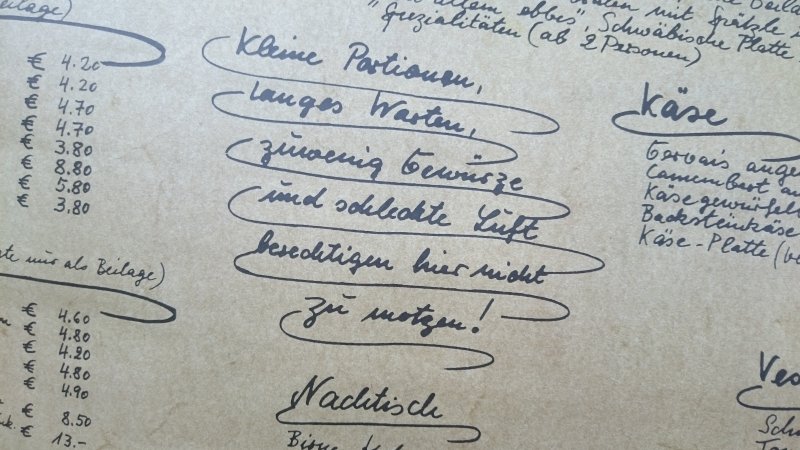 Beilage)
€ 4.20
€ 4.20
€ 4.70
€ 4.70
€ 3.80
€ 8.80
€ 5.80
€ 3.80
nur als Beilage)
€ 4.60
€ 4.80
€ 4.20
€ 4.80
€ 4.90
€ 8.50
€ 13.-
mit Spätzle
ebbes", Schwäbische Platte
Spezialitäten (ab 2 Personen)
Kleine Portionen,
langes Warten,
zuwenig Gewürze
und schlechte Luft
berechtigen hier nicht
zu motzen!
Nachtisch
Käse
Gervais
Camembert
Käse gewürfelt
Backsteinkäse
Käse-Platte